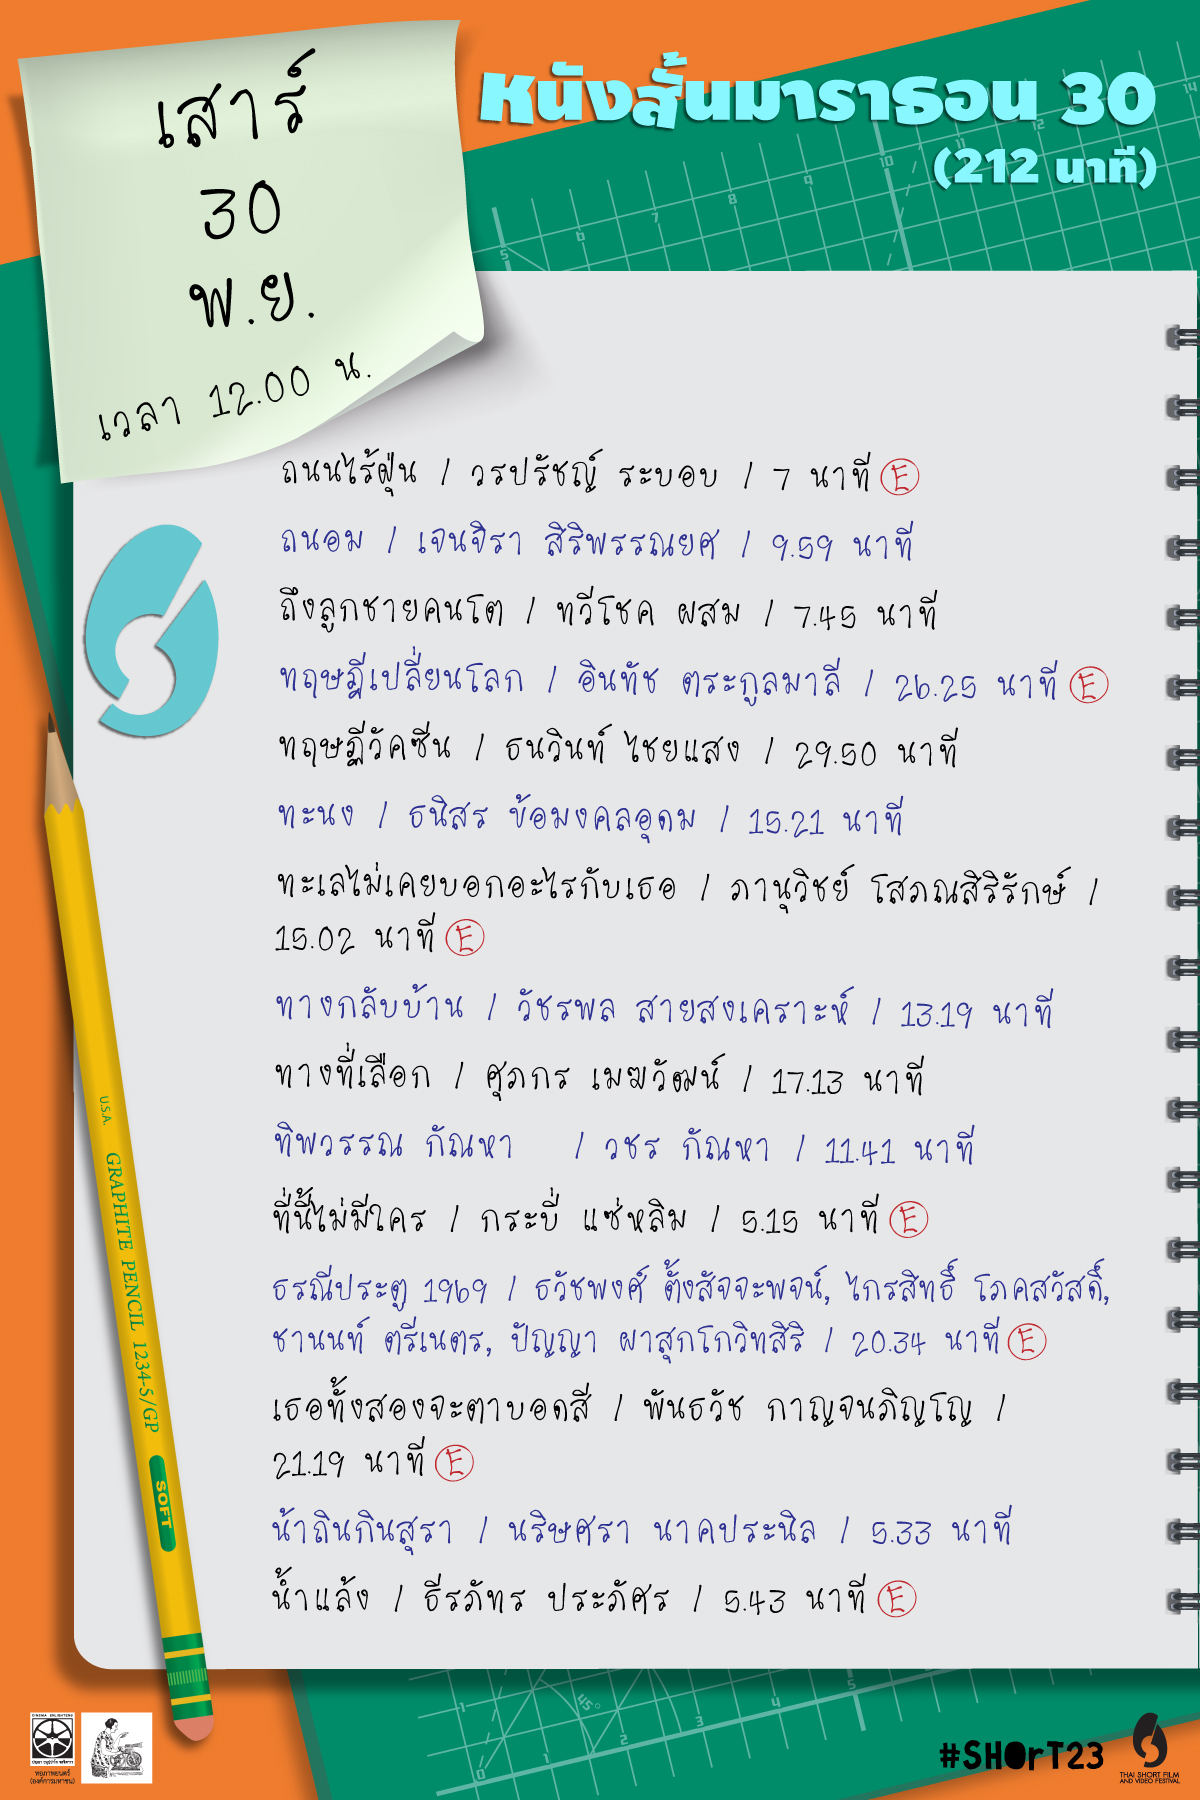 เสาร์
30
พ.ย.
เวลา 12.00 น.
หนังสั้นมาราธอน 30
(212 นาที)
ถนนไร้ฝุ่น / วรปรัชญ์ ระบอบ / 7 นาที E
ถนอม / เจนจิรา สิริพรรณยศ / 9.59 นาที
ถึงลูกชายคนโต / ทวีโชค ผสม / 7.45 นาที
ทฤษฎีเปลี่ยนโลก / อินทัช ตระกูลมาลี / 26.25 นาที E
ทฤษฎีวัคซีน / ธนวินท์ ไชยแสง / 29.50 นาที
ทะนง / ธนิสร ข้อมงคลอุดม / 15.21 นาที
ทะเลไม่เคยบอกอะไรกับเธอ / ภานุวิชย์ โสภณสิริรักษ์ /
15.02 นาที E
ทางกลับบ้าน / วัชรพล สายสงเคราะห์ / 13.19 นาที
ทางที่เลือก / ศุภกร เมฆวัฒน์ / 17.13 นาที
ทิพวรรณ กัณหา / วชร กัณหา / 11.41 นาที
ที่นี้ไม่มีใคร / กระบี่ แซ่หลิม / 5.15 นาที E
ธรณีประตู 1969 / ธวัชพงศ์ ตั้งสัจจะพจน์, ไกรสิทธิ์ โภคสวัสดิ์,
ชานนท์ ตรีเนตร, ปัญญา ผาสุกโกวิทสิริ / 20.34 นาที E
เธอทั้งสองจะตาบอดสี / พันธวัช กาญจนภิญโญ /
21.19 นาที E
น้าถินกินสุรา / นริษศรา นาคประนิล / 5.33 นาที
น้ำแล้ง / ธีรภัทร ประภัศร / 5.43 นาที E
U.S.A. GRAPHITE PENCIL 1234-5/GP
SOFT
14
12
10
9
8
7
6
5
1
45°
0
2
3
4
CINEMA ENLIGHTENS
หอภาพยนตร์
(องค์การมหาชน)
#SHOrT23
THAI SHORT FILM
AND VIDEO FESTIVAL